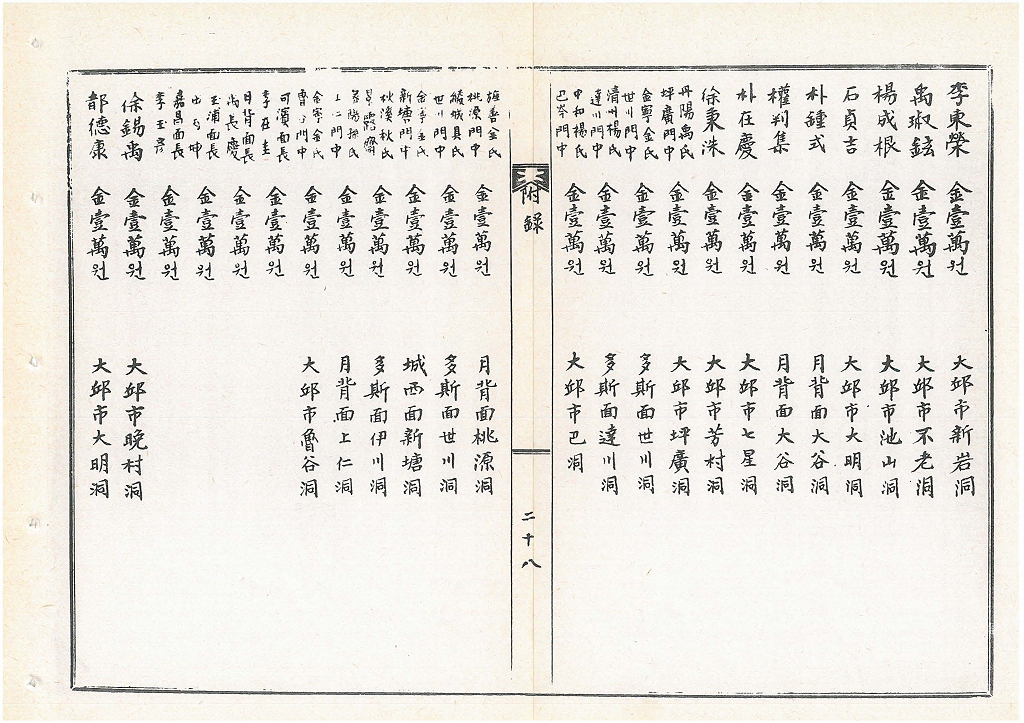 李東榮 金壹萬원 大邱市新岩洞
禹琡鉉 金壹萬원 大邱市不老洞
楊成根 金壹萬원 大邱市池山洞
石貞吉 金壹萬원 大邱市大明洞
朴鍾式 金壹萬원 月背面大谷洞
權判集 金壹萬원 月背面大谷洞
朴在慶 金壹萬원 大邱市七星洞
徐秉洙 金壹萬원 大邱市芳村洞
丹陽禹氏
坪廣門中 金壹萬원 大邱市坪廣洞
金寧金氏
世川門中 金壹萬원 多斯面世川洞
淸州楊氏
達川門中 金壹萬원 多斯面達川洞
中和楊氏
巴岑門中 金壹萬원 大邱市巴洞
附錄
二十八
善金氏
桃源門中 金壹萬원 月背面桃源洞
綾城具氏
世川門中 金壹萬원 多斯面世川洞
新塘門中 金壹萬원 城西面新塘洞
秋溪秋氏
金壹萬원 多斯面伊川洞
上仁門中 金壹萬원 月背面上仁洞
金寧金氏
門中 金壹萬원 大邱市魯谷洞
面長
李在圭 金壹萬원
月背面長
尚長慶 金壹萬원
玉浦面長
金壹萬원
嘉昌面長
李玉彦 金壹萬원
徐錫禹 金壹萬원 大邱市晩村洞
都德康 金壹萬원 大邱市大明洞